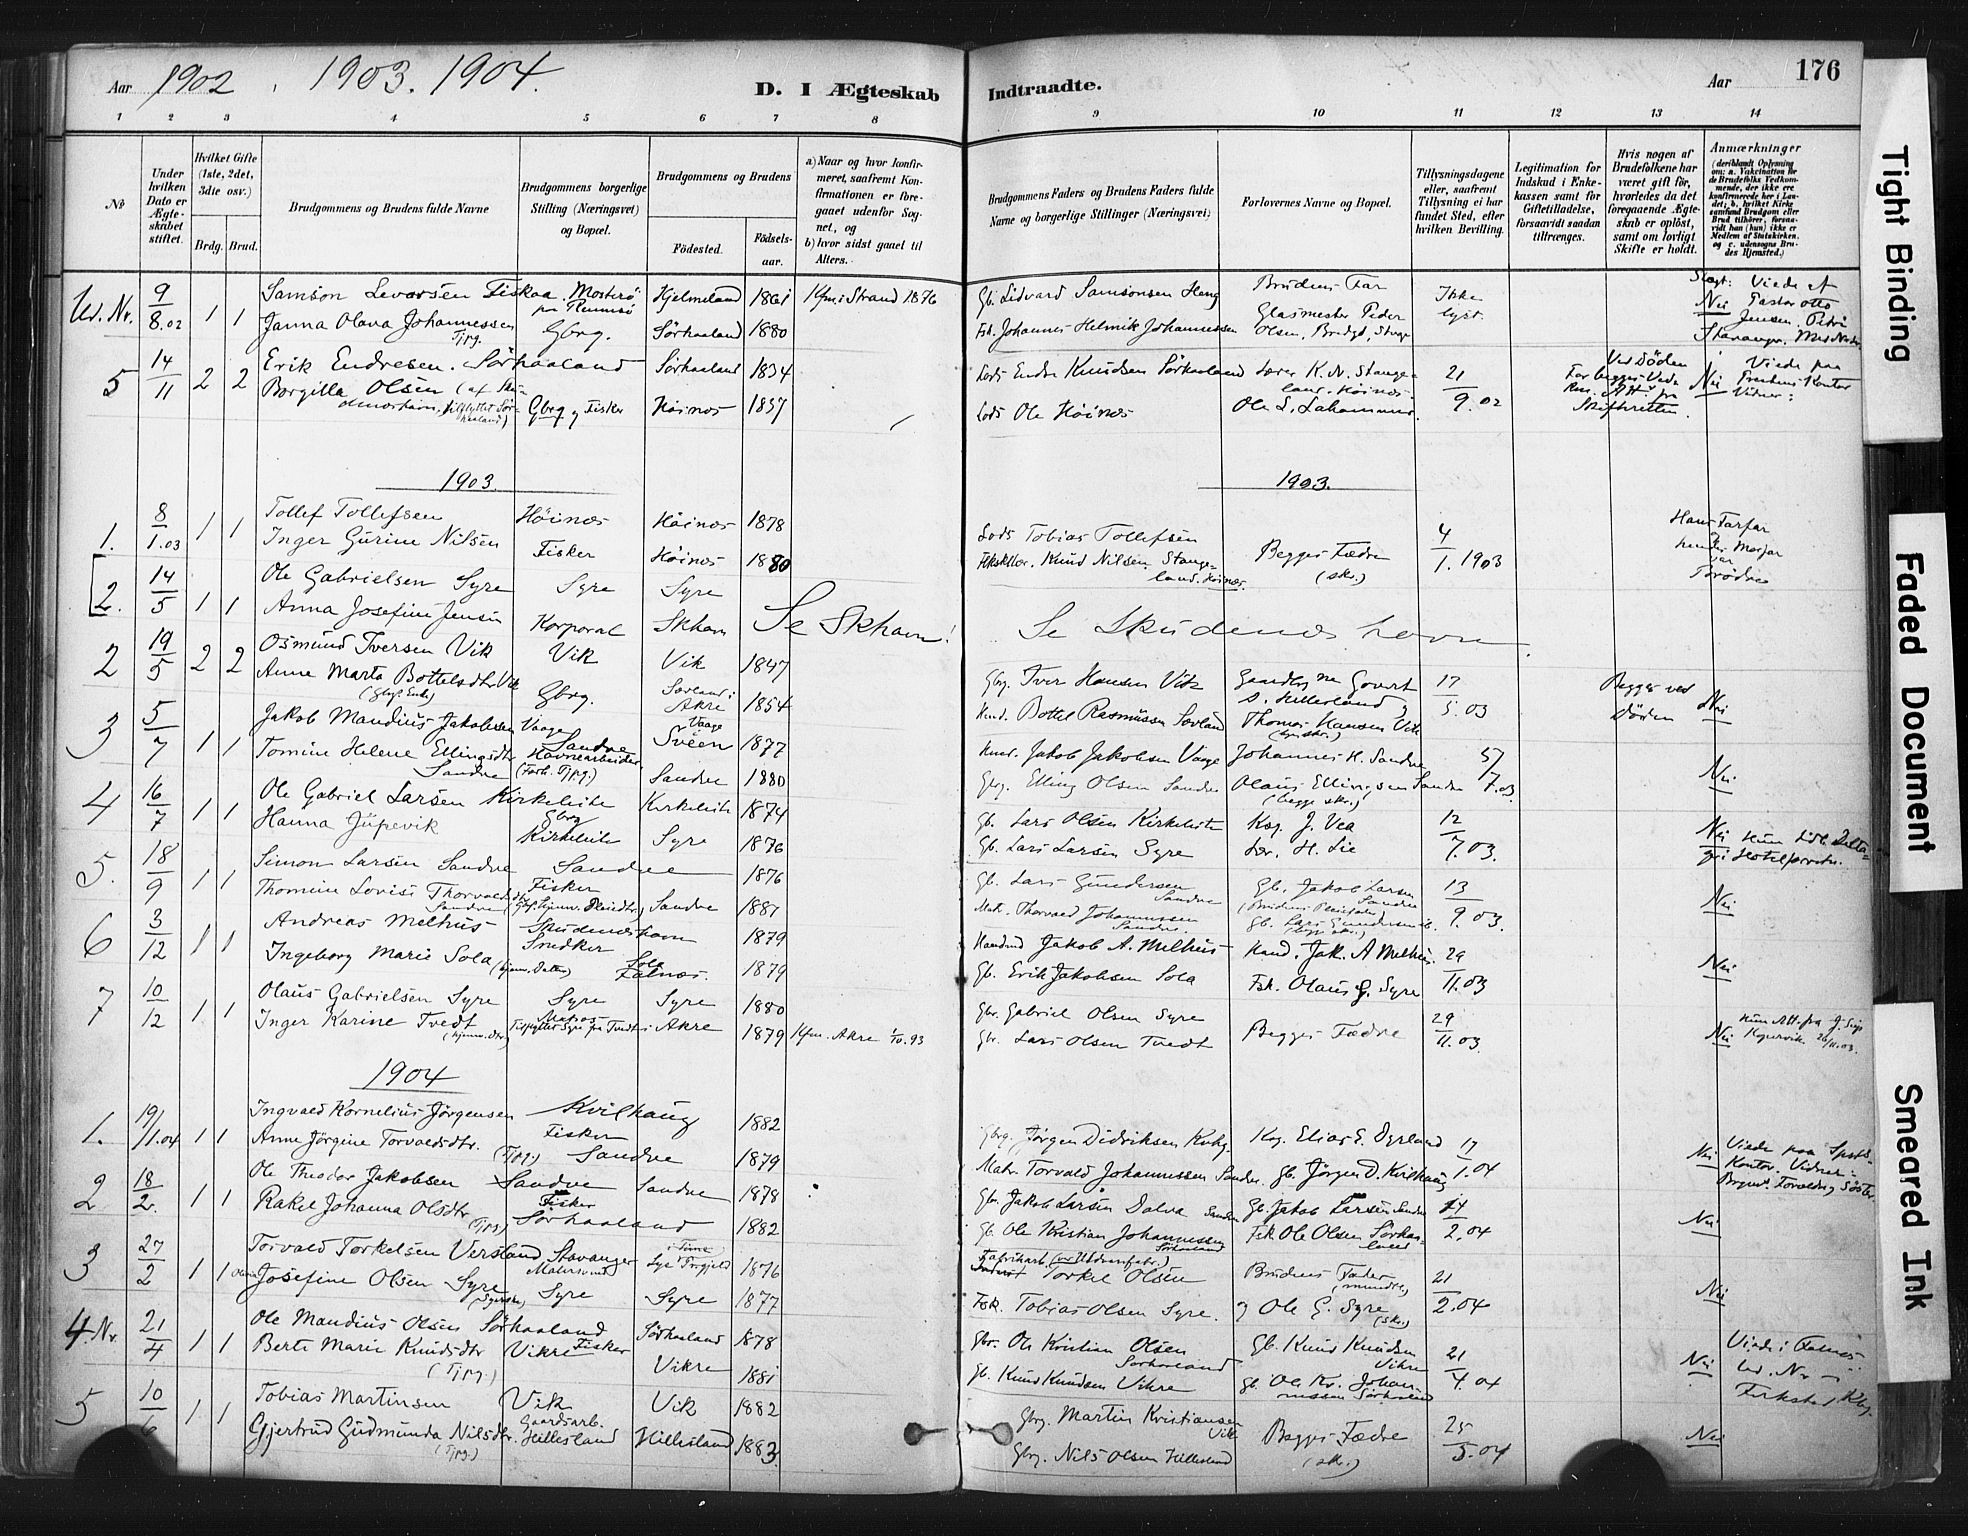 Aar 1902, 1903. 1904.
D. I Ægteskab Indtraadte.
Aar 176
1 2 3 4 5 6 7 8 9 10 11 12 13 14
No
Under hvilken Dato er Ægteskabet stiftet.
Hvilket Gifte (1ste, 2det, 3die osv.)
Brdg. Brud.
Brudgommens og Brudens fulde Navne
Brudgommens borgerlige Stilling (Næringsvei) og Bopæl.
Brudgommens og Brudens
Fødested.
Fødselsaar.
a) Naar og hvor konfirmeret, saafremt Konfirmationen er foregaaet udenfor Sognet, og
b) hvor sidst gaaet til Alters.
Brudgommens Faders og Brudens Faders fulde Navne og borgerlige Stillinger (Næringsvei)
Forlovernes Navne og Bopæl.
Tillysningsdagene eller, saafremt Tillysning ei har fundet Sted, efter hvilken Bevilling.
Legitimation for Indskud i Enkekassen samt for Giftetilladelse, forsaavidt saadan tiltrænges.
Hvis nogen af Brudefolkene har været gift før, hvorledes da det foregaaende Ægteskab er opløst, samt om lovligt Skifte er holdt.
Anmærkninger
(deriblandt Oplysning om: a. Vakcination for de Brudefolks Vedkommende, der ikke ere konfirmerede her i Landet; b. hvilket Kirkesamfund Brudgom eller Brud tilhører, forsaavidt han (hun) ikke er Medlem af Statskirken, og c. udensogns Brudes Hjemsted.)
Ud. Nr. 9/8.02 1 1 Samson Levorsen Fiskaa Mosterø Hjelmeland 1861 Kfm. i Strand 1876 Gb. Samsonsen Brudens Far Ikke lyst. Viede af
Janna Olava Johannessen Gbrg. Sørhaaland 1880 Fsk. Johannes Helmik Johannessen Glasmester Peder Olsen, Nei Pastor Otto Jensen, Petri Stavanger.
5 14/11 2 2 Erik Endresen Sørhaaland Sørhaaland 1834 Lods Endre Knudsen Sørhaaland Lærer K. N. Stangeland. Høinæs 21/9.02 Ved Døden Nei Viede paa
Borgilla Olsen Gbrg og Fisker Høinæs 1857 Lods Ole Høinæs Ole L. Lahammer Skifteretten. Kontor Vidner:
1903 1903.
1. 8/1.03 1 1 Tollef Tollefsen Høinæs Høinæs 1878 Lods Tobias Tollefsen 4/1.1903 Hans Farfar
Inger Gurine Nilsen Fisker Høinæs 1880 Knud Nilsen Stangeland. Høinæs. Begges Fædre (skr.) hendes Morfar var
[2. 14/5 1 1 Ole Gabrielsen Syre Syre Syre
Anna Josefine Jensen Korporal Skhavn Se Skhavn! Se Skudenæshavn.
2 19/5 2 2 Osmund Iversen Vik Vik Vik 1847 Gbrg. Iver Hansen Vik Govert S. Hillesland og 17/5.03 Begges ved Døden Nei
Anne Marta Bottelsdtr Vik Gbrg. Sævland i Akre 1854 Bottel Rasmussen Sævland Thomas Hansen Vik
3 5/7 1 1 Jakob Mandius Jakobsen Vaage Sandve Vaage Sveen 1877 Jakob Jakobsen Vaage Johannes H. Sandve 5/7.03 Nei
Tomine Helene Ellingsdtr Sandve Havnearbeider Sandve 1880 Gbrg. Elling Olsen Sandve Olaus Ellingsen Sandve (begge skr.)
4 16/7 1 1 Ole Gabriel Larsen Kirkeleite Gbrg Kirkeleite 1874 Gb. Lars Olsen Kirkeleite Ksg. J. Vea 12/7.03. Nei
Hanna Jüpevik Kirkeleite Syre 1876 Gb. Lars Larsen Syre Lær. H. Lie
5. 18/9 1 1 Simon Larsen Sandve Sandve 1876 Gb. Lars Gundersen Sandve Gb. Jakob Larsen Sandve 13/9.03. Nei
Thomine Lovise Thorvaldsdtr Sandve Fisker Sandve 1881 Matr. Thorvald Johannessen Sandve. Gb. Lars Gundersen
6 3/12 1 1 Andreas Melhus Skudenæshavn Snedker 1879 Jakob A. Melhus Jak. A Melhus. 29/11.03 Nei
Ingeborg Marie Sola Sola Falnæs. 1879 Gb. Erik Jakobsen Sola Fsk. Olaus G. Syre
7 10/12 1 1 Olaus Gabrielsen Syre Syre Matros Syre 1880 Gbr. Gabriel Olsen Syre Begges Fædre 29/11.03. Nei
Inger Karine Tvedt Akre 1879 Kfm. Akre 1/10.93 Gbr. Lars Olsen Tvedt
1904
1. 19/1.04 1 1 Ingvald Kornelius Jørgensen Kvilhaug 1882 Gbrg. Jørgen Didriksen Kvhg. Ksg. Elias E. Dyrland 17/1.04 Nei Viede paa
Anne Jørgine Torvaldsdtr. (Tjpg.) Fisker Sandve 1879 Matr. Torvald Johannessen Sandve. Gb. Jørgen D. Kvilhaug Kontor. Vidner:
2 18/2. 1 1 Ole Theodor Jakobsen Sandve Sandve 1878 Gbr. Jakob Larsen Dalva Sandve Gb. Jakob Larsen Sandve 14/2.04 Nei
Rakel Johanna Olsdtr (Tjpg) Fisker Sørhaaland 1882 Gb. Ole Kristian Johannessen Sørhaaland Fsk Ole Olsen Sørhaaland
3 27/2 1 1 Torvald Torkelsen Versland Stavanger 1876 Torkel Olsen Brudens Fader 21/2.04 Nei
Josefine Olsen Syre Malersvend Syre Syre 1877 Fsk. Tobias Olsen Syre. og Ole G. Syre (skr.)
4. Nr. 21/4 1 1 Ole Mandius Olsen Sørhaaland Fisker Sørhaaland 1878 Gbr. Ole Kristian Olsen Sørhaaland Gb. Knud Knudsen Vikre 21/4.04 Nei Viede i
Berte Marie Knudsdtr (Tjpg.) Vikre Vikre 1881 Gb. Knud Knudsen Vikre Gb. Ole Kr. Johannessen Sørhaaland
5 10/6 1 1 Tobias Martinsen Vik Vik 1882 Gbrg. Martin Kristiansen Vik Begges Fædre (skr.) 25/5.04 Nei
Gjertrud Gudmunda Nilsdtr. (Tjpg.) Gaardsarb. Hillesland Hillesland 1883. Gbrg. Nils Olsen Hillesland
Tight Binding
Faded Document
Smeared Ink